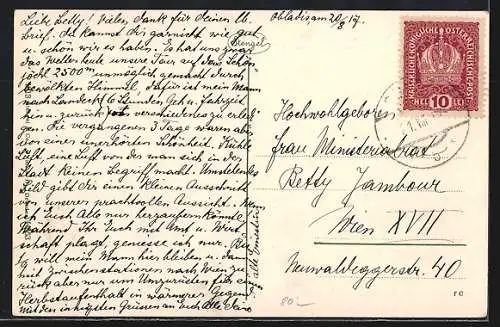 Obladis, am 20/8 17.
Liebe Betty! Vielen Dank für Deinen lb.
Brief. Du kannst Dir garnicht wie gut
u. schön wir es haben. Es hat uns zwar
das Wetter heute unsere Tour auf das Schön
jöchl 2500 m unmöglich gemacht durch
bewölkten Himmel, dafür ist mein Mann
nach Landeck 6 Stunden Geh u. Fahrzeit
hin u. zurück um verschiedenes zu erledi
gen. Die vergangenen 3 Tage waren aber
von einer unerhörten Schönheit. Kühle
Luft, eine Luft von der man sich in der
Stadt keinen Begriff macht. Umstehendes
Bild gibt Dir einen kleinen Ausschnitt
von unserer prachtvollen Aussicht. Wenn
ich Euch Alle nur herzaubern könnte.
Während Ihr Euch mit Amt u. Wirt
schaft plagt, genesse ich nur.
will mein Mann hier bleiben u. dann
mit Zwischenstationen nach Wien zu
rück aber nur um Umzurüsten für ein
Herbstaufenthalt in wärmerer Gegend
Mit den innigsten Grüssen an Euch Alle
KAISERLICHE KÖNIGLICHE ÖSTERREICHISCHE POST
HELLER 10
Hochwohlgeboren
Frau Ministerialrat
Betty Jambour
Wien XVII
Neuwaldeggerstr. 40
80.-